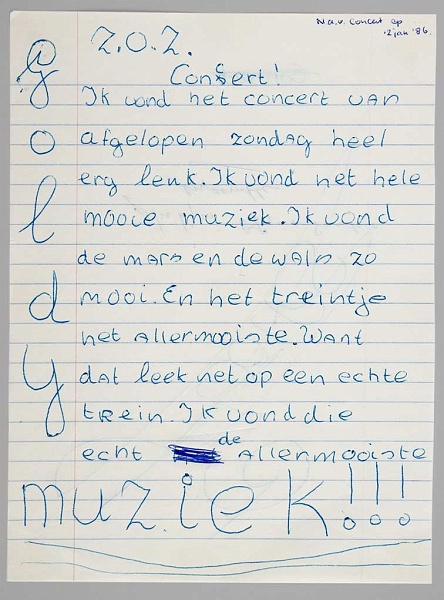 N.a.v. concert op
12 jan '86.
Z.O.Z.
Goldy
Concert!
Ik vond het concert van
afgelopen zondag heel
erg leuk. Ik vond het hele
mooie muziek. Ik vond
de mars en de wals zo
mooi. En het treintje
het Allermooiste. Want
dat leek net op een echte
trein. Ik vond die
echt de Allermooiste
muziek!!!